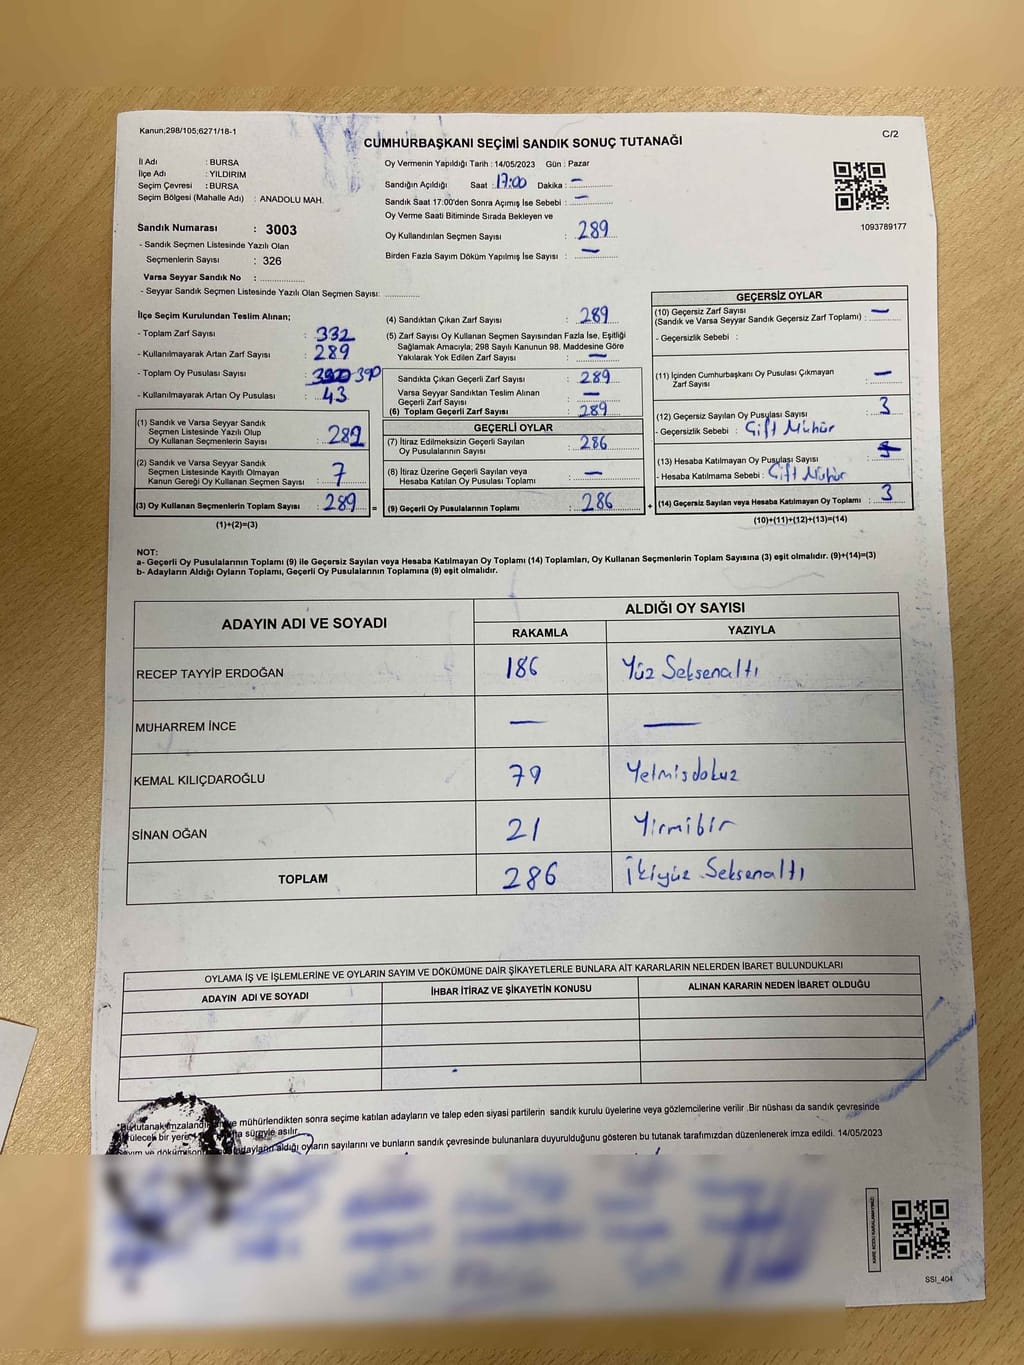 Kanun;298/105;6271/18-1
C/2
CUMHURBAŞKANI SEÇİMİ SANDIK SONUÇ TUTANAĞI
İl Adı : BURSA
İlçe Adı : YILDIRIM
Seçim Çevresi : BURSA
Seçim Bölgesi (Mahalle Adı) : ANADOLU MAH.
Sandık Numarası : 3003
- Sandık Seçmen Listesinde Yazılı Olan
Seçmenlerin Sayısı : 326
Varsa Seyyar Sandık No :
- Seyyar Sandık Seçmen Listesinde Yazılı Olan Seçmen Sayısı:
Oy Vermenin Yapıldığı Tarih : 14/05/2023 Gün : Pazar
Sandığın Açıldığı Saat : 17:00 Dakika : —
Sandık Saat 17:00'den Sonra Açımış İse Sebebi : —
Oy Verme Saati Bitiminde Sırada Bekleyen ve
Oy Kullandırılan Seçmen Sayısı : 289
Birden Fazla Sayım Döküm Yapılmış İse Sayısı : —
1093789177
İlçe Seçim Kurulundan Teslim Alınan;
- Toplam Zarf Sayısı : 332
- Kullanılmayarak Artan Zarf Sayısı : 289
- Toplam Oy Pusulası Sayısı : 390
- Kullanılmayarak Artan Oy Pusulası : 43
(1) Sandık ve Varsa Seyyar Sandık
Seçmen Listesinde Yazılı Olup
Oy Kullanan Seçmenlerin Sayısı : 282
(2) Sandık ve Varsa Seyyar Sandık
Seçmen Listesinde Kayıtlı Olmayan
Kanun Gereği Oy Kullanan Seçmen Sayısı : 7
(3) Oy Kullanan Seçmenlerin Toplam Sayısı : 289 =
(1)+(2)=(3)
(4) Sandıktan Çıkan Zarf Sayısı : 289
(5) Zarf Sayısı Oy Kullanan Seçmen Sayısından Fazla İse, Eşitliği
Sağlamak Amacıyla; 298 Sayılı Kanunun 98. Maddesine Göre
Yakılarak Yok Edilen Zarf Sayısı : —
Sandıkta Çıkan Geçerli Zarf Sayısı : 289
Varsa Seyyar Sandıktan Teslim Alınan
Geçerli Zarf Sayısı : —
(6) Toplam Geçerli Zarf Sayısı : 289
GEÇERLİ OYLAR
(7) İtiraz Edilmeksizin Geçerli Sayılan
Oy Pusulalarının Sayısı : 286
(8) İtiraz Üzerine Geçerli Sayılan veya
Hesaba Katılan Oy Pusulası Toplamı : —
(9) Geçerli Oy Pusulalarının Toplamı : 286 +
GEÇERSİZ OYLAR
(10) Geçersiz Zarf Sayısı
(Sandık ve Varsa Seyyar Sandık Geçersiz Zarf Toplamı) : —
- Geçersizlik Sebebi :
(11) İçinden Cumhurbaşkanı Oy Pusulası Çıkmayan
Zarf Sayısı : —
(12) Geçersiz Sayılan Oy Pusulası Sayısı : 3
- Geçersizlik Sebebi : Çift Mühür
(13) Hesaba Katılmayan Oy Pusulası Sayısı :
- Hesaba Katılmama Sebebi : Çift Mühür
(14) Geçersiz Sayılan veya Hesaba Katılmayan Oy Toplamı : 3
(10)+(11)+(12)+(13)=(14)
NOT:
a- Geçerli Oy Pusulalarının Toplamı (9) ile Geçersiz Sayılan veya Hesaba Katılmayan Oy Toplamı (14) Toplamları, Oy Kullanan Seçmenlerin Toplam Sayısına (3) eşit olmalıdır. (9)+(14)=(3)
b- Adayların Aldığı Oyların Toplamı, Geçerli Oy Pusulalarının Toplamına (9) eşit olmalıdır.
ADAYIN ADI VE SOYADI
ALDIĞI OY SAYISI
RAKAMLA YAZIYLA
RECEP TAYYİP ERDOĞAN 186 Yüz Seksenaltı
MUHARREM İNCE — —
KEMAL KILIÇDAROĞLU 79 Yetmişdokuz
SİNAN OĞAN 21 Yirmibir
TOPLAM 286 İkiyüz Seksenaltı
OYLAMA İŞ VE İŞLEMLERİNE VE OYLARIN SAYIM VE DÖKÜMÜNE DAİR ŞİKAYETLERLE BUNLARA AİT KARARLARIN NELERDEN İBARET BULUNDUKLARI
ADAYIN ADI VE SOYADI İHBAR İTİRAZ VE ŞİKAYETİN KONUSU ALINAN KARARIN NEDEN İBARET OLDUĞU
mühürlendikten sonra seçime katılan adayların ve talep eden siyasi partilerin sandık kurulu üyelerine veya gözlemcilerine verilir .Bir nüshası da sandık çevresinde
bir yere süreyle asılır.
aldığı oyların sayılarını ve bunların sandık çevresinde bulunanlara duyurulduğunu gösteren bu tutanak tarafımızdan düzenlenerek imza edildi. 14/05/2023
SSI_404